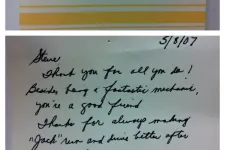 5/8/07
Steve
Thank you for all you do!
Besides being a fantastic mechanic,
you're a good friend
Thanks for always making
"Jack" run and drive better after